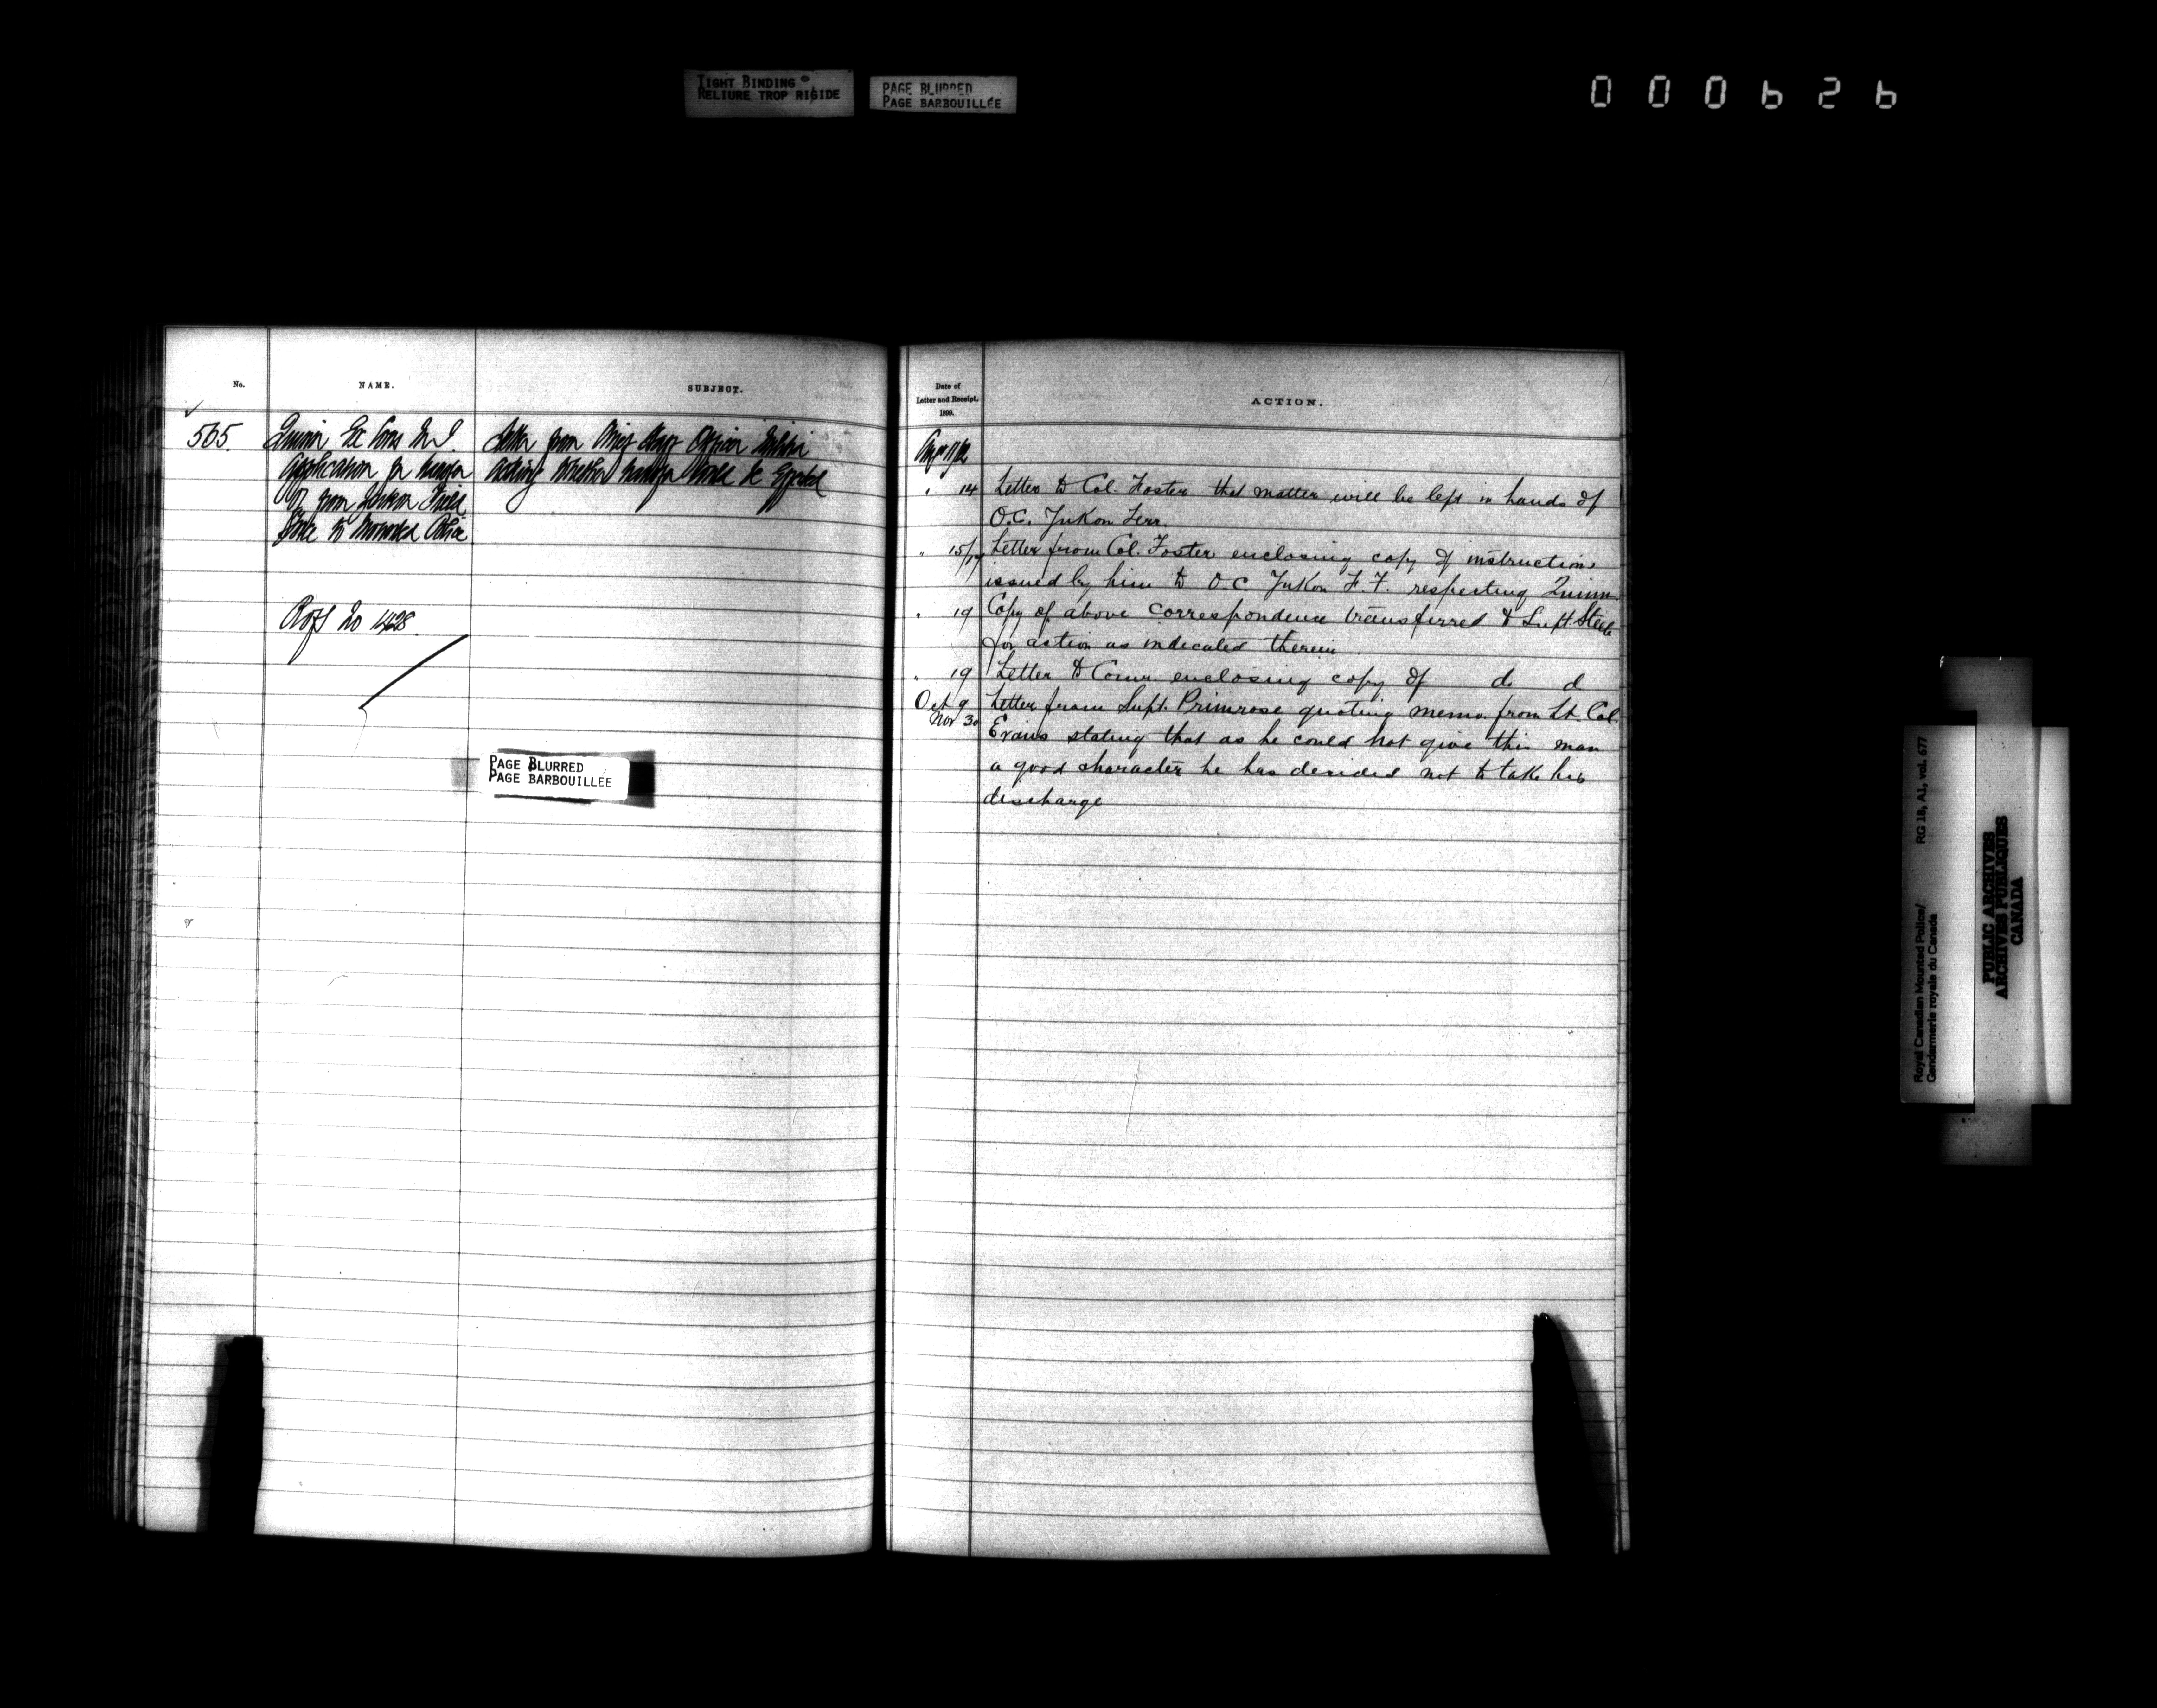 TIGHT BINDING
RELIURE TROP RIGIDE
PAGE BLURRED
PAGE BARBOUILLÉE
000626
No.
NAME.
SUBJECT.
565.
Quinn Ex Cons M J.
Application for transfer
of from Yukon Field
Force to Mounted Police
Letter from Chief Staff Officer Militia
asking whether transfer could be effected
Reg No 1428
PAGE BLURRED
PAGE BARBOUILLÉE
Date of
Letter and Receipt.
1899.
ACTION.
Aug 11/12
" 14 Letter to Col. Foster that matter will be left in hands of
O.C. Yukon Terr.
" 15/17 Letter from Col. Foster enclosing copy of instructions
issued by him to O.C Yukon F. F. respecting Quinn
" 19 Copy of above correspondence transferred to Supt. Steele
for action as indicated therein
" 19 Letter to Comr. enclosing copy of do d
Oct 9 Letter from Supt. Primrose quoting memo. from Lt. Col.
Nov 30 Evans stating that as he could not give this man
a good character he has decided not to take his
discharge
Royal Canadian Mounted Police/
Gendarmerie royale du Canada
RG 18, A1, vol. 677
PUBLIC ARCHIVES
ARCHIVES PUBLIQUES
CANADA